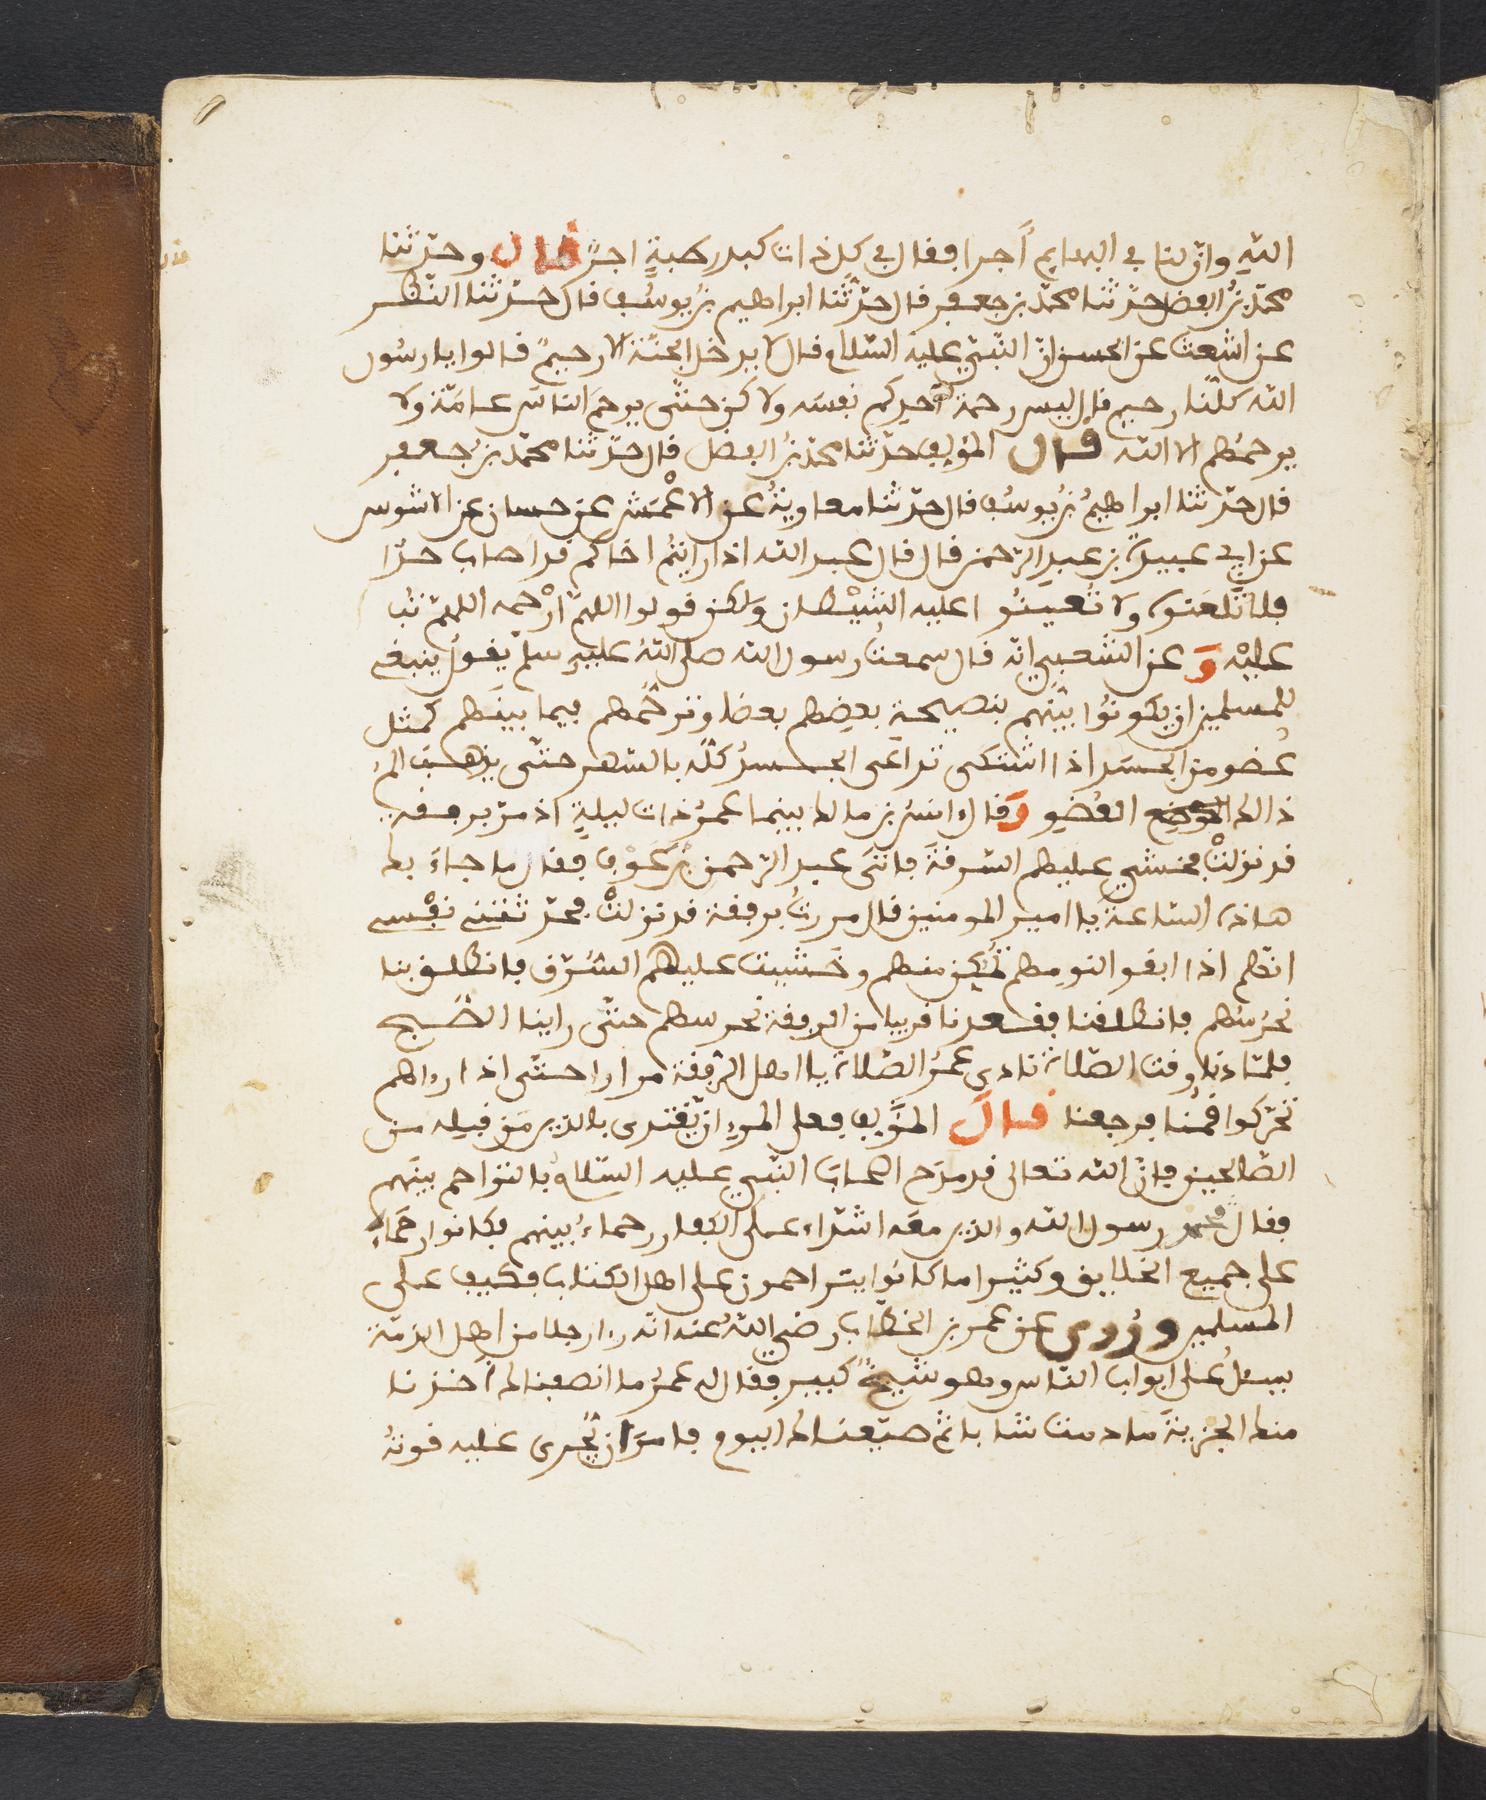 الله وانّ لنا في البهايم أجرا فقال في كل ذات كبد رطبةٍ اجرٌ قال وحدّثنا
محمّد بنُ الفضل حدّثنا محمّد بن جعفر قال حدّثنا ابراهيم بنُ يوسُف قال حدّثنا النّضر
عن اشعث عن الحسن انّ النّبيّ عليه السّلام قال لا يدخل الجنّة الا رحيمٌ قالوا يا رسُول
الله كلّنا رحيم قال ليس رحمة احدكم نفسَه ولاكن حتّى يرحمَ الناسَ عامّة ولا
يرحمُهم الا الله قال المؤلف حدّثنا محمّد بنُ الفضل قال حدّثنا محمّد بن جعفر
قال حدّثنا ابراهيمُ بنُ يوسُف قال حدّثنا معاويةُ عن الاعْمَش عن حسان عن الاشوس
عن ابي عبيدة بن عبدِ الرّحمن قال قال عبد الله اذا رايتُم اخاكم قد اصاب حدّا
فلا تلعَنوه ولا تُعينُوا عليه الشيْطان ولكن قولوا اللهمّ ارْحمه اللهمّ تُب
عليْه وَ عن الشعبي انّه قال سمعتُ رسول الله صلى اللهُ عليه وسلم يقولُ ينبغي
للمسلمين ان يكونوُا بينَهم بنصيحةِ بعضِهم بعضا وترحّمهم فيما بينَهم كمثل
عضو من الجسَد اذا اشتكى تداعى الجسدُ كلّه بالسّهر حتّى يذهبَ الم
ذالك الموضع العُضوِ وَقال انسُ بن مالك بينما عمرُ ذات ليلةٍ اذ مرّ برفقة
قد نزلتْ فخشي عليهم السّرقةَ فاتَى عبد الرّحمن بنَ عَوْف فقال ما جاءَ بك
هاذه السّاعةَ يا امير المومنين قال مررتُ برفقة قد نزلتْ فحدّثتني نفْسي
انّهم اذا القوا النوم عليهم تُمُكِّن منهم وخَشيت عليهم السُّرّق فانطلق بنا
نحْرُسُهم فانطلقنا فقعدنا قريبا من الرفقة نحرسهم حتّى راينا الصّبح
فلمّا دنا وقت الصّلاة نادى عمرُ الصّلاة يا اهل الرّفقة مرارا حتّى اذا راهم
تحرّكوا قُمْنا فرجعنا قالَ المؤَلف فعلى المرءِ ان يَقتدى بالذين مَن قبله من
الصّالحين فانّ الله تعالى قد مدَح اصحابَ النّبي عليه السّلام بالتراحم بينَهم
فقال محمد رسول الله والذين معَه اشدّاء على الكفار رحماءُ بينهم فكانوا رحَماءَ
على جميع الخلايق وكثيرا ما كانُوا يتراحمون على اهل الكتاب فكيف على
المسلمين ورُوى عن عمر بن الخطّاب رضي اللهُ عنه انّه رءا رجلا من اهل الذمّة
يسئلُ على ابواب النّاس وهو شيخٌ كبير فقال له عمرُ ما انصفناك اخذنا
منك الجزيةَ ما دمت شابا ثم ضيّعناك اليوم فامرَ ان يُجرى عليه قوتهُ